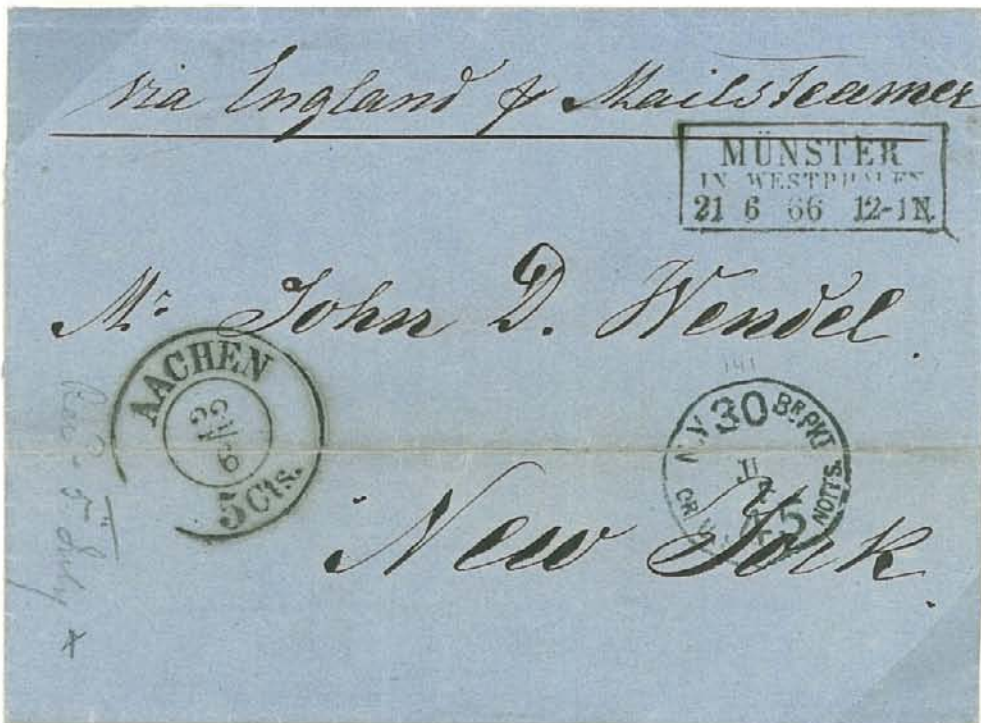 via England & Mailsteamer
MÜNSTER
IN WESTPHALEN
21 6 66 12-1N.
Mr John D. Wendel.
141
AACHEN
22/6
5 Cts.
N.Y. 30 BR.PKT
45
NOTES.
New York.
5 July